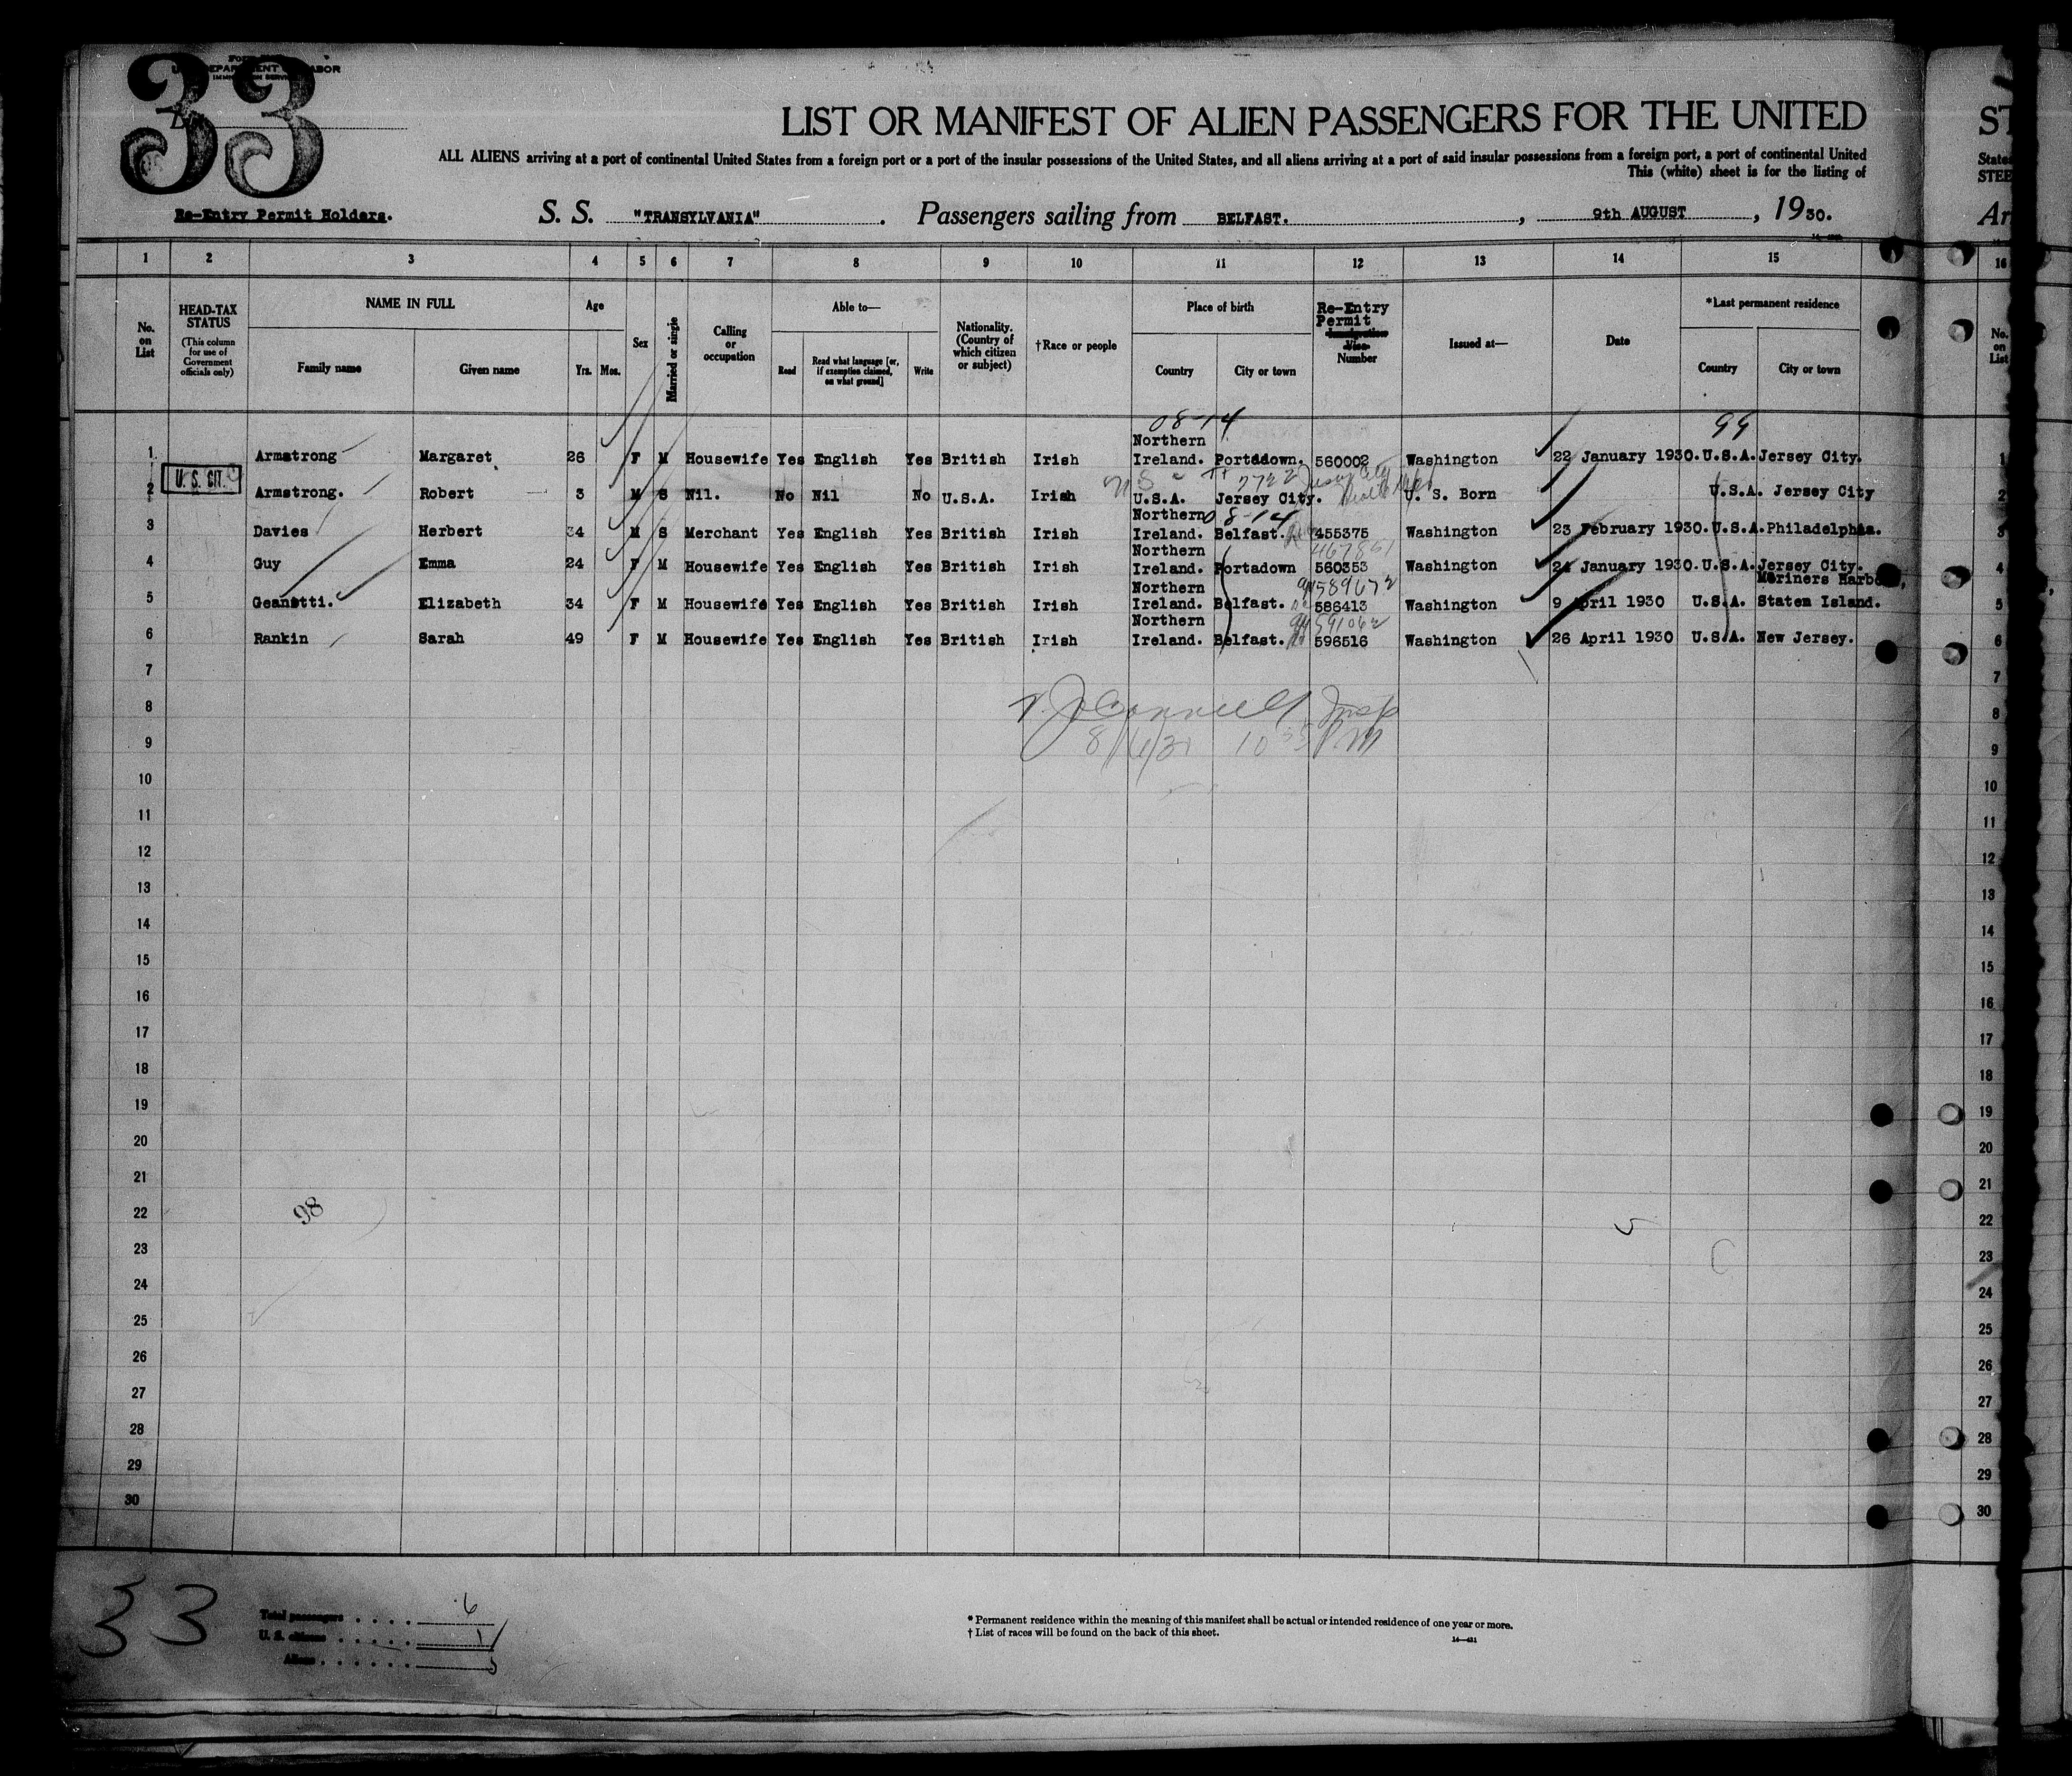 33
LIST OR MANIFEST OF ALIEN PASSENGERS FOR THE UNITED
ALL ALIENS arriving at a port of continental United States from a foreign port or a port of the insular possessions of the United States, and all aliens arriving at a port of said insular possessions from a foreign port, a port of continental United
This (white) sheet is for the listing of
Re-Entry Permit Holders. S. S. "TRANSYLVANIA". Passengers sailing from BELFAST. , 9th AUGUST , 1930.
1 2 3 4 5 6 7 8 9 10 11 12 13 14 15 16
No. on List
HEAD-TAX STATUS (This column for use of Government officials only)
NAME IN FULL
Family name Given name
Age
Yrs. Mos.
Sex
Married or single
Calling or occupation
Able to—
Read Read what language [or, if exemption claimed, on what ground] Write
Nationality. (Country of which citizen or subject)
†Race or people
Place of birth
Country City or town
Re-Entry Permit Number
Issued at—
Date
*Last permanent residence
Country City or town
No. on List
08-14 99
1 Armstrong Margaret 26 F M Housewife Yes English Yes British Irish Northern Ireland. Portadown. 560002 Washington 22 January 1930. U.S.A. Jersey City. 1
2 U. S. CIT. Armstrong. Robert 3 M S Nil. No Nil No U.S.A. Irish U.S.A. Jersey City. U. S. Born U.S.A. Jersey City 2
08-14
3 Davies Herbert 34 M S Merchant Yes English Yes British Irish Northern Ireland. Belfast. 455375 Washington 23 February 1930. U.S.A. Philadelphia. 3
4 Guy Emma 24 F M Housewife Yes English Yes British Irish Northern Ireland. Portadown 560353 Washington 24 January 1930. U.S.A. Jersey City. 4
5 Geanetti. Elizabeth 34 F M Housewife Yes English Yes British Irish Northern Ireland. Belfast. 586413 Washington 9 April 1930 U.S.A. Mariners Harbor, Staten Island. 5
6 Rankin Sarah 49 F M Housewife Yes English Yes British Irish Northern Ireland. Belfast. 596516 Washington 26 April 1930 U.S.A. New Jersey. 6
7 7
8 Insp 8
9 PM 9
10 10
11 11
12 12
13 13
14 14
15 15
16 16
17 17
18 18
19 19
20 20
21 21
22 98 22
23 23
24 24
25 25
26 26
27 27
28 28
29 29
30 30
33
Total passengers . . . . 6
U. S. citizens . . . . . 1
Aliens . . . . . . 5
* Permanent residence within the meaning of this manifest shall be actual or intended residence of one year or more.
† List of races will be found on the back of this sheet.